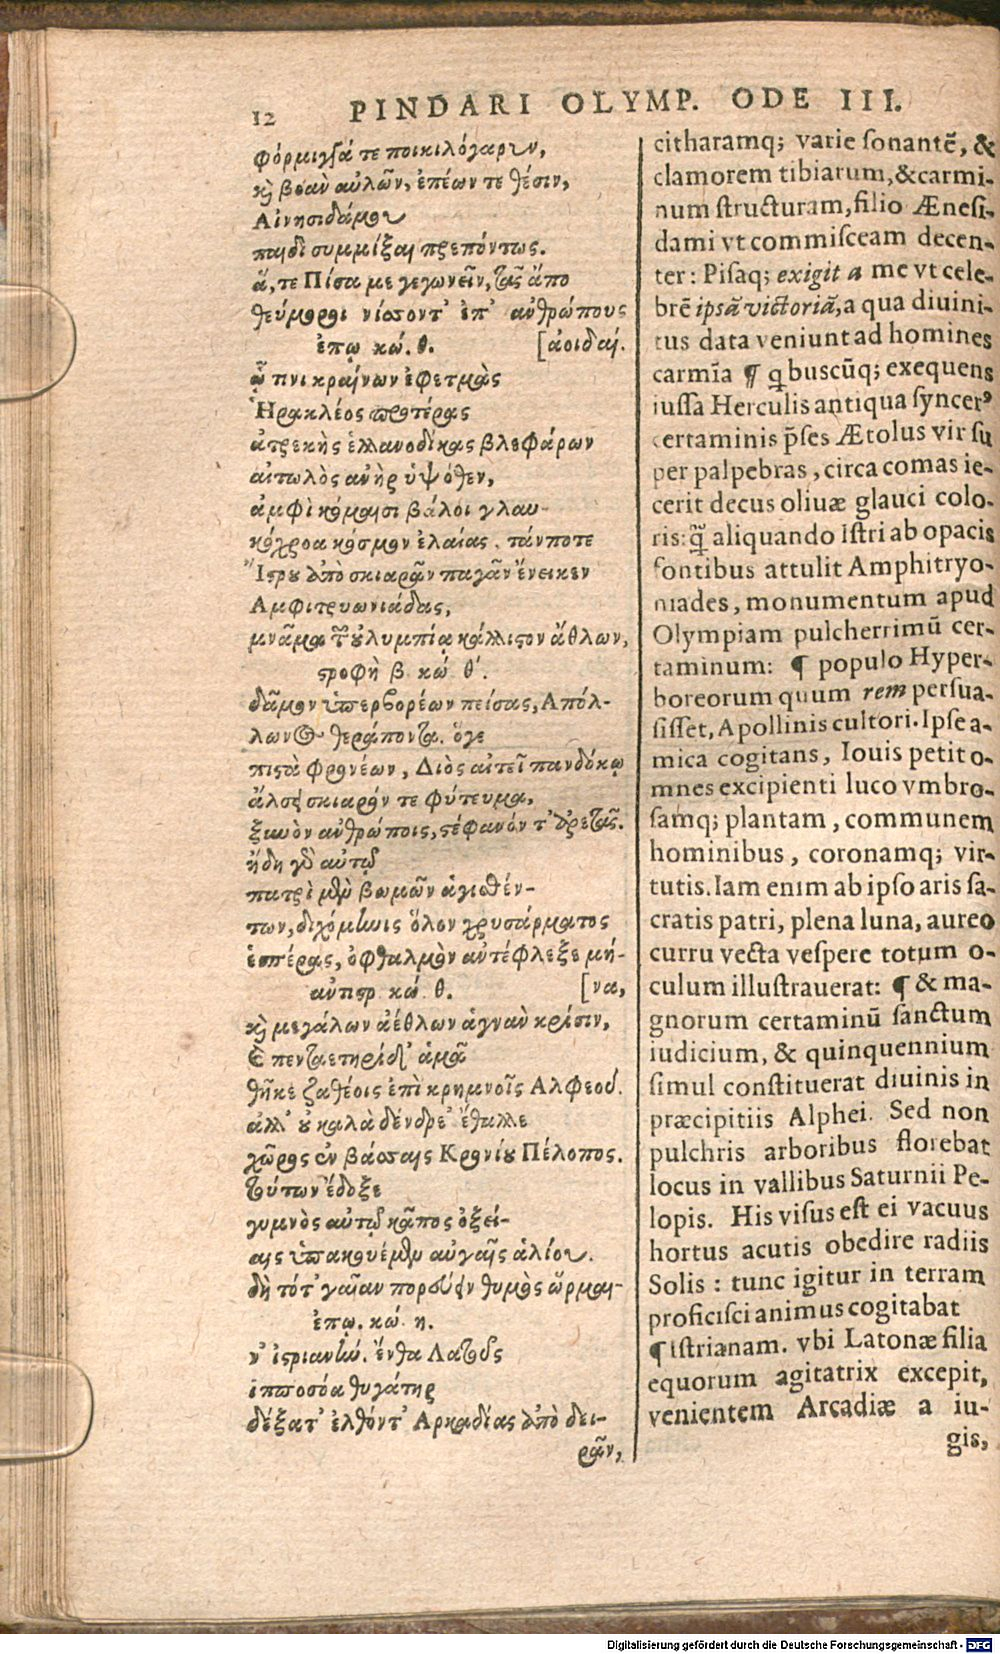 12 PINDARI OLYMP. ODE III.
φόρμιγγά τε ποικιλόγαρυν,
καὶ βοὰν αὐλῶν, ἐπέων τε θέσιν,
Αἰνησιδάμου
παιδὶ συμμίξαι πρεπόντως.
ἅ, τε Πίσα με γεγωνεῖν, τᾶς ἄπο
θεύμοροι νίσσοντ' ἐπ' ἀνθρώπους
ἐπῳ. κώ. θ. [ἀοιδαί.
ᾧ τινι κραίνων ἐφετμὰς
Ἡρακλέος προτέρας
ἀτρεκὴς ἑλλανοδίκας βλεφάρων
αἰτωλὸς ἀνὴρ ὑψόθεν,
ἀμφὶ κόμαισι βάλοι γλαυ-
κόχροα κόσμον ἐλαίας. τάν ποτε
Ἴστρου ἀπὸ σκιαρᾶν παγᾶν ἔνεικεν
Αμφιτρυωνιάδας,
μνᾶμα τῶν οὐλυμπίᾳ κάλλιστον ἄθλων,
στροφὴ β. κώ. θ'.
δᾶμον ὑπερβορέων πείσας, Απόλ-
λωνος θεράποντα. ὅγε
πιστὰ φρονέων, Διὸς αἰτεῖ πανδόκῳ
ἄλσει σκιαρόν τε φύτευμα,
ξυνὸν ἀνθρώποις, στέφανόν τ' ἀρετᾶς.
ἤδη γὰρ αὐτῷ
πατρὶ μὲν βωμῶν ἁγισθέν-
των, διχόμηνις ὅλον χρυσάρματος
ἑσπέρας, ὀφθαλμὸν αὐτέφλεξε μή-
αὐτιστρ. κώ. θ. [να,
καὶ μεγάλων ἀέθλων ἁγνὰν κρίσιν,
καὶ πενταετηρίδ' ἁμᾶ
θῆκε ζαθέοις ἐπὶ κρημνοῖς Αλφεοῦ.
ἀλλ' οὐ καλὰ δένδρε' ἔθαλλε
χῶρος ἐν βάσσαις Κρονίου Πέλοπος.
τούτων ἔδοξε
γυμνὸς αὐτῷ κᾶπος ὀξεί-
αις ὑπακουέμεν αὐγαῖς ἁλίου.
δὴ τότ' γαῖαν πορεύειν θυμὸς ὥρμαι-
ἐπῳ. κώ. η.
ν' ἰστριανὴν. ἔνθα Λατοῦς
ἱπποσόα θυγάτηρ
δέξατ' ἐλθόντ' Αρκαδίας ἀπὸ δει-
ρᾶν,
citharamq; varie sonantē, &
clamorem tibiarum, & carmi-
num structuram, filio Ænesi-
dami vt commisceam decen-
ter: Pisaq; exigit a me vt cele-
brē ipsā victoriā, a qua diuini-
tus data veniunt ad homines
carmīa ¶ q̃buscūq; exequens
iussa Herculis antiqua syncer⁹
certaminis p̃ses Ætolus vir su
per palpebras, circa comas ie-
cerit decus oliuæ glauci colo-
ris: q̃ aliquando Istri ab opacis
fontibus attulit Amphitryo-
niades, monumentum apud
Olympiam pulcherrimū cer-
taminum: ¶ populo Hyper-
boreorum quum rem persua-
sisset, Apollinis cultori. Ipse a-
mica cogitans, Iouis petit o-
mnes excipienti luco vmbro-
samq; plantam, communem
hominibus, coronamq; vir-
tutis. Iam enim ab ipso aris sa-
cratis patri, plena luna, aureo
curru vecta vespere totum o-
culum illustrauerat: ¶ & ma-
gnorum certaminū sanctum
iudicium, & quinquennium
simul constituerat diuinis in
præcipitiis Alphei. Sed non
pulchris arboribus florebat
locus in vallibus Saturnii Pe-
lopis. His visus est ei vacuus
hortus acutis obedire radiis
Solis: tunc igitur in terram
proficisci animus cogitabat
¶ Istrianam. vbi Latonæ filia
equorum agitatrix excepit,
venientem Arcadiæ a iu-
gis,
Digitalisierung gefördert durch die Deutsche Forschungsgemeinschaft - DFG